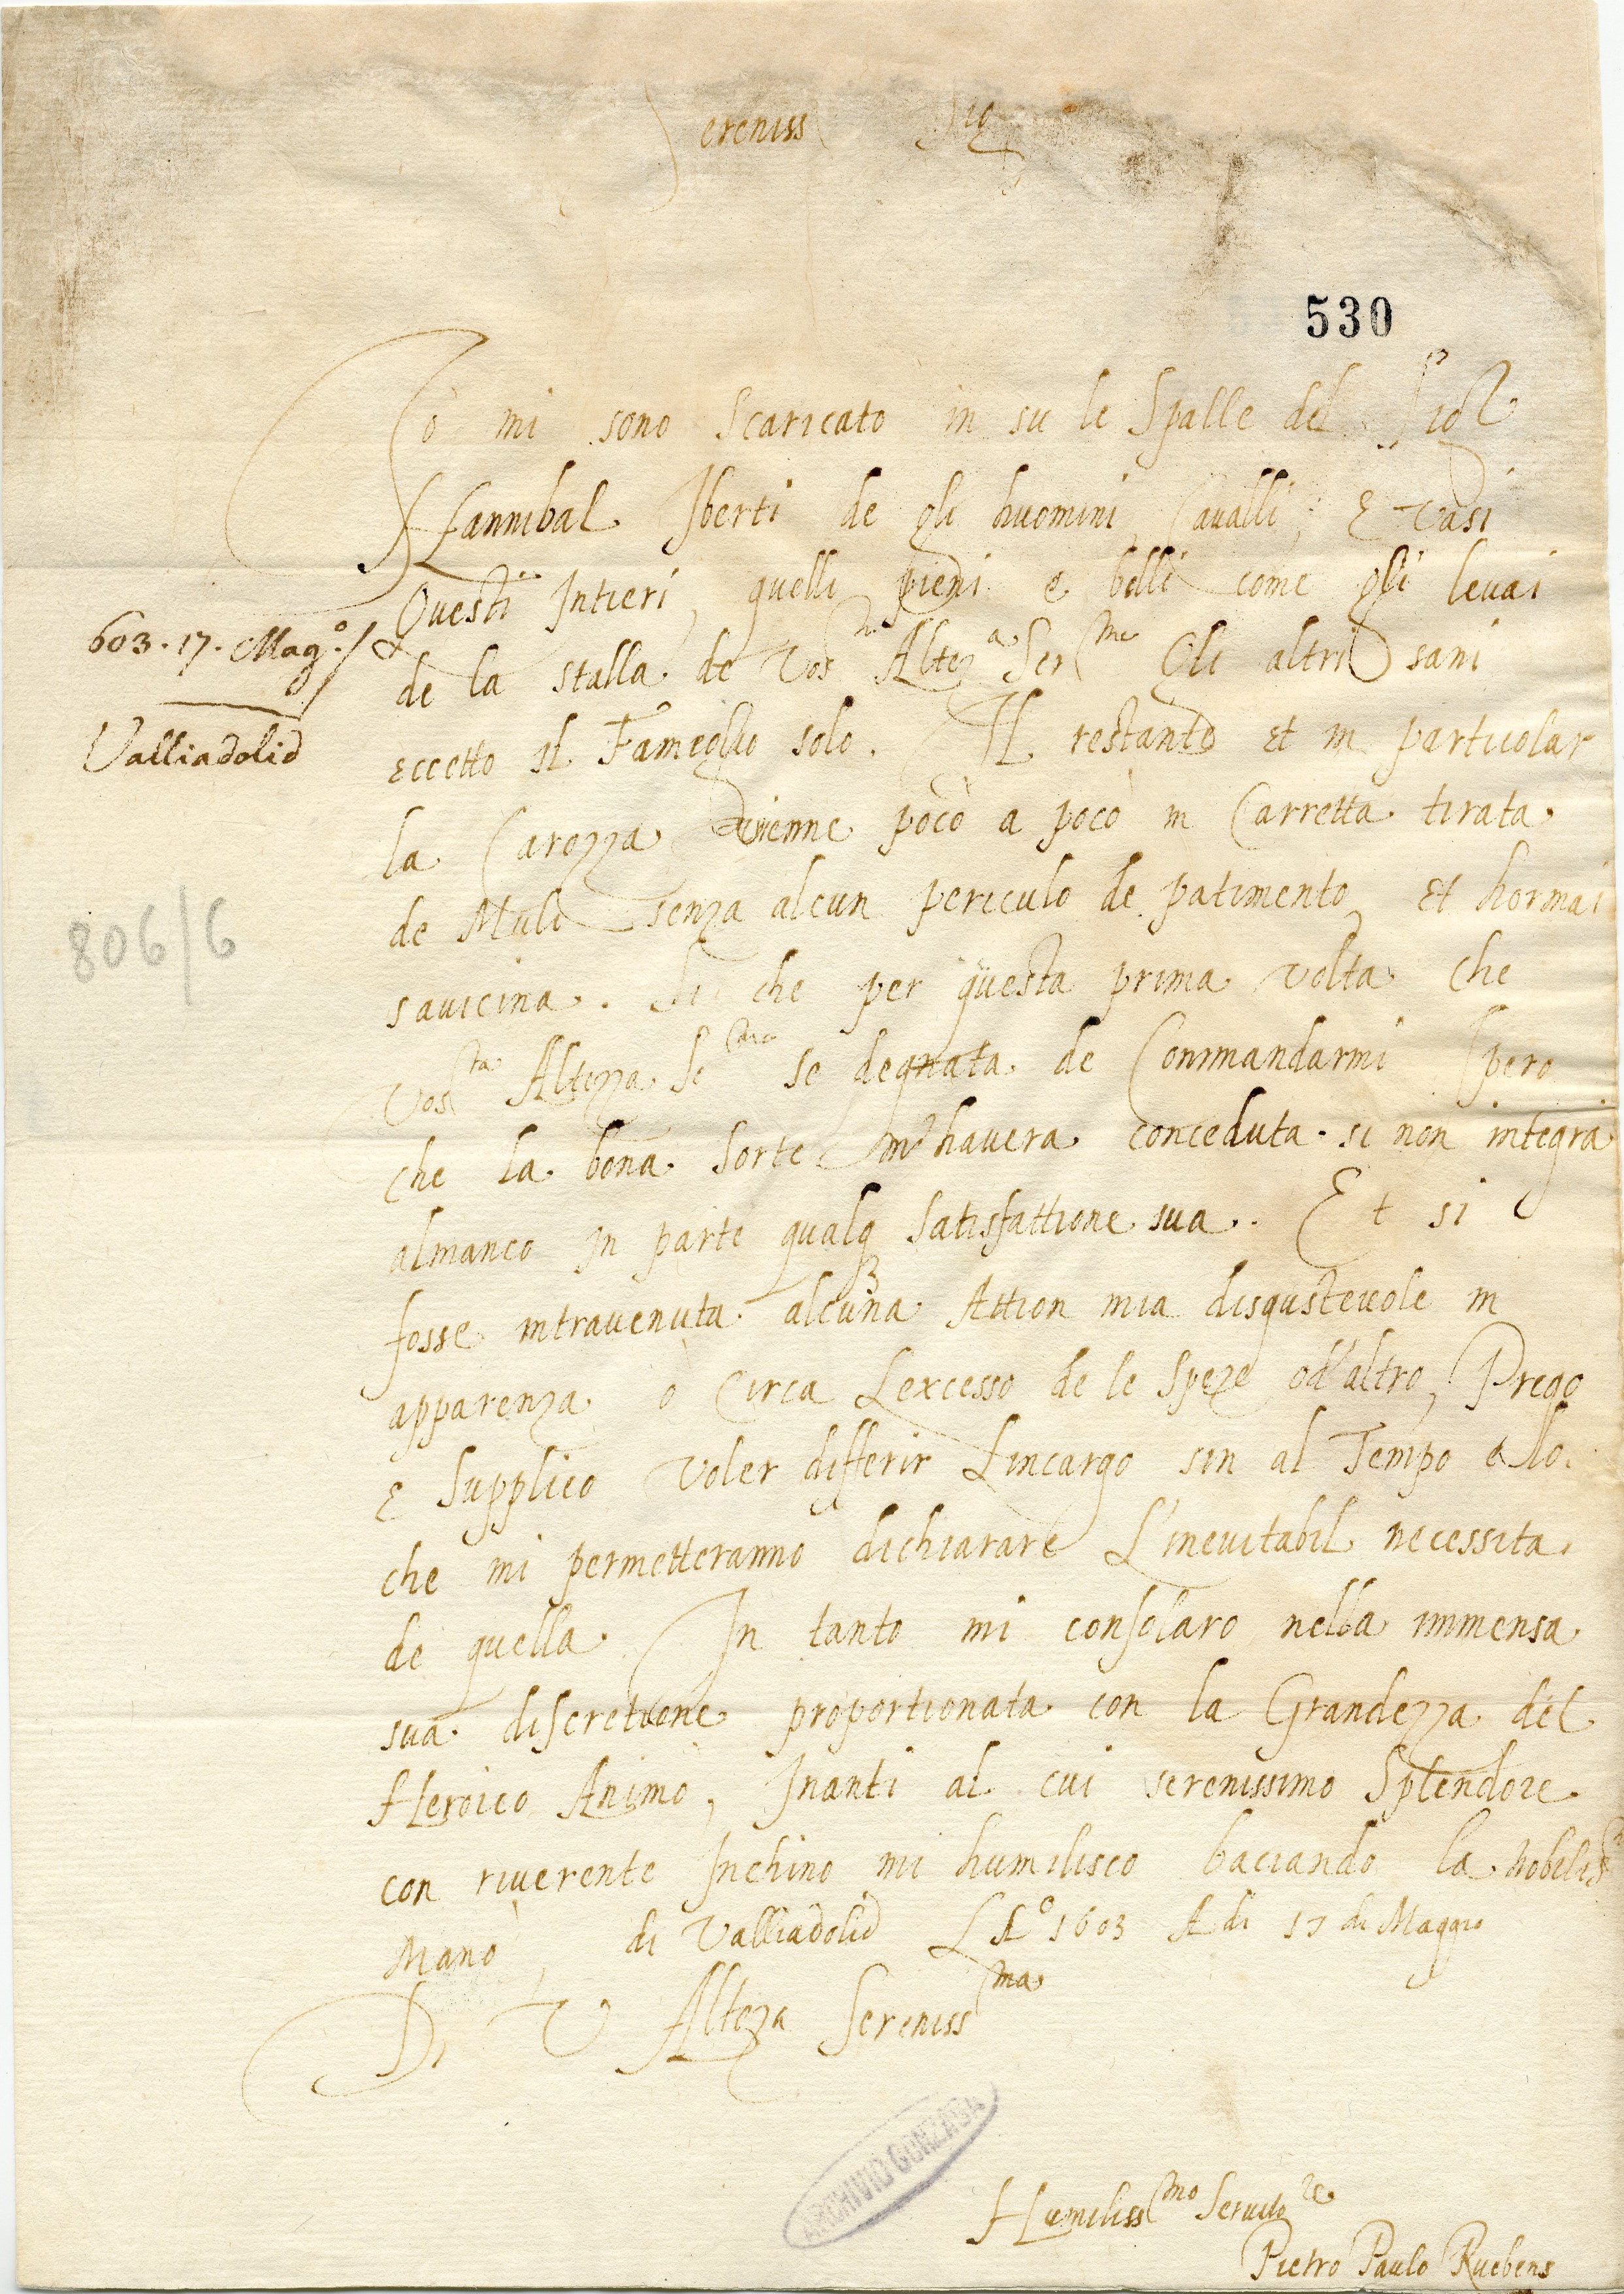 Sereniss Sigr
530
Io mi sono scaricato in su le Spalle del Sigr
Hannibal Iberti de gli huomini Cavalli, E Vasi
Questi Intieri, quelli pieni e belli come gli levai
603. 17. Magº./
de la stalla de Vosra Alteza Serme Gli altri sani
eccetto il Fameglio solo. Il restante et in particolar
Valliadolid
la Carozza vienne poco a poco in Carretta tirata
de Muli senza alcun periculo de patimento, et hormai
806/6
savicina. Si che per questa prima volta che
Vosra Altezza Sema se degnata de Commandarmi Spero
che la bona sorte m'havera conceduta si non integra
almanco in parte qualq satisfattione sua. Et si
fosse intravenuta alcuna Attion mia disgustevole in
apparenza o Circa Lexcesso de le Speze od'altro, Prego
e Supplico voler differir Lincargo sin al Tempo e lo.
che mi permetteranno dichiarare L'inevitabil necessita
de quella. In tanto mi consolaro nella immensa
sua discretione proportionata con la Grandezza del
Heroico Animo, Inanti al cui serenissimo Splendore
con riverente Inchino mi humilisco baciando la nobiliss
Mano, di Valliadolid LAº 1603 A di 17 di Maggio
Di V Alteza Serenissma
ARCHIVIO GONZAGA
Humilissmo Servitore
Pietro Paulo Ruebens